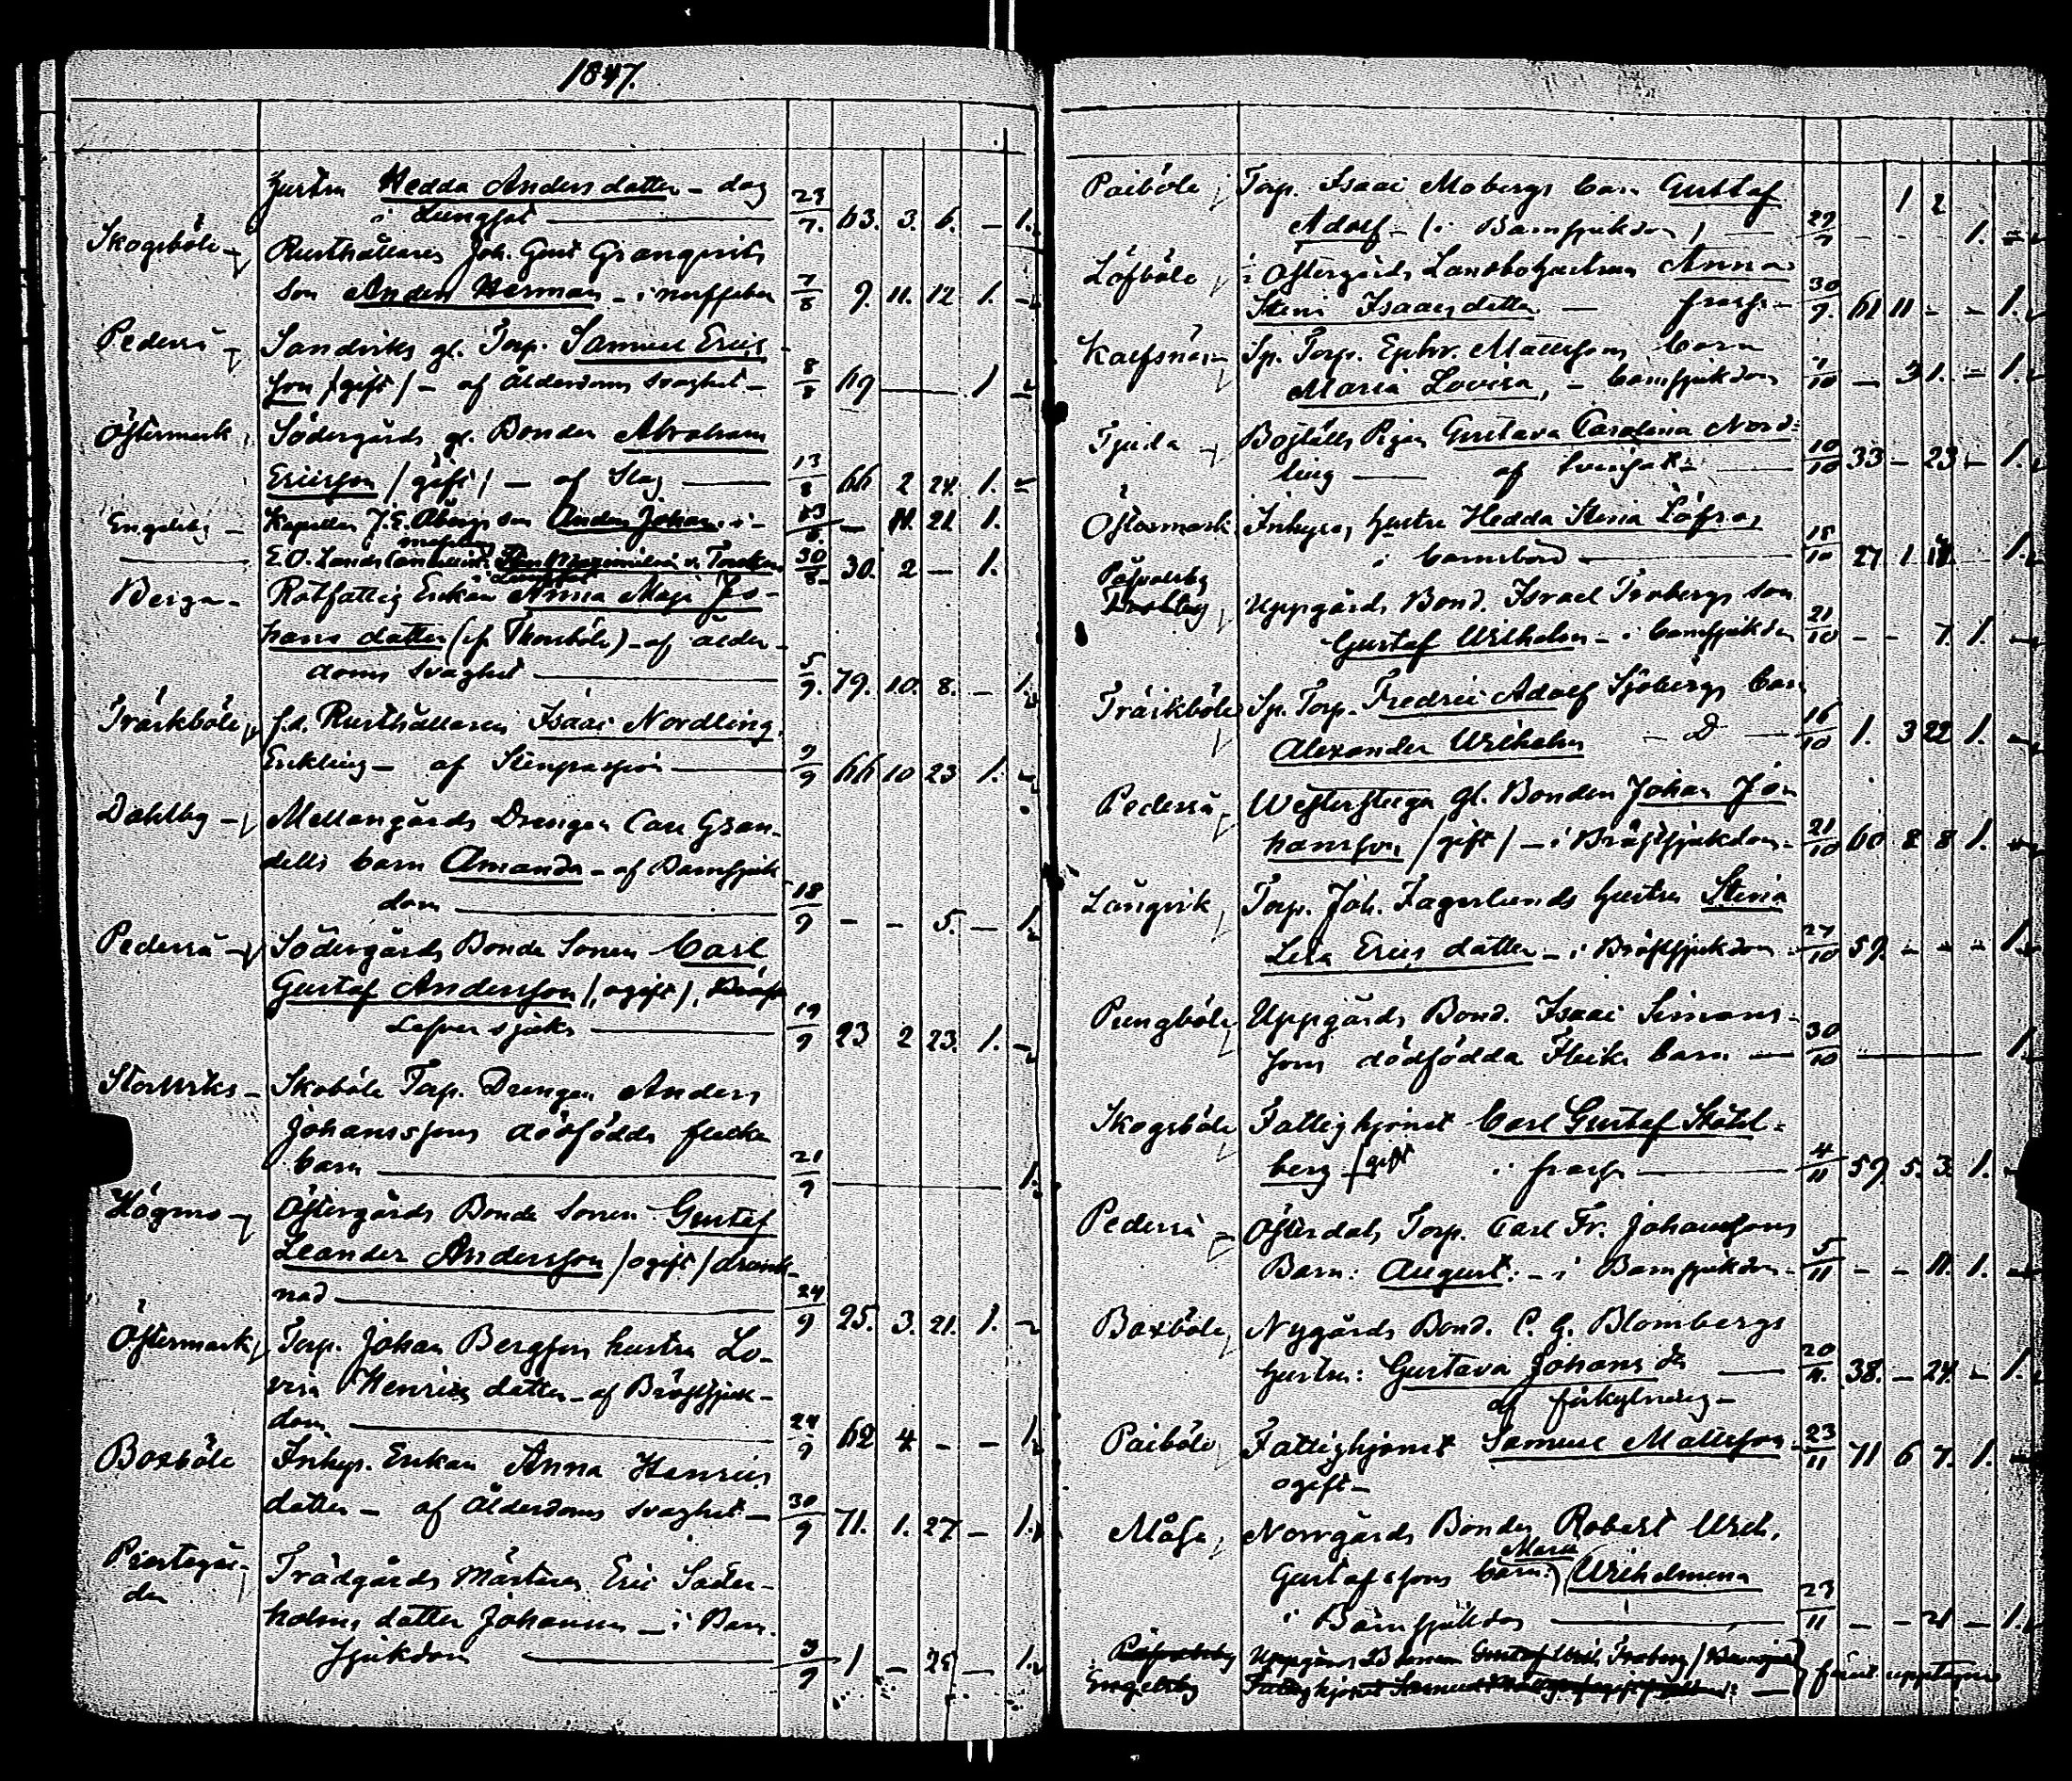 1847.
hustru Hedda Andersdotter - dog
i Lungsot 23/7. 63. 3. 6. - 1.
Skogsböle - Rusthållaren Joh. Gust Granqvists
Son Anders Herman - i 7/8 9. 11. 12 1. -
Pederså - Sandviks gl. Torp. Samuel Erics
son /gift/ - af Ålderdoms svaghet - 8/8 69 1 -
Östermark, Södergårds gl. Bonden Abraham
Ericsson /gift/ - af Slag 13/8 66 2 24. 1. -
Engelsby - Kapellan J. E. Åbergs son Anders Johan i - 13/8. - 11. 21. 1.
E. O. Lands Cancellist. 30/8. 30. 2 - 1.
i Lungsot
Berga - Rotfattig Enkan Anna Maja Jo-
hans dotter (if Thorsböle) - af ålder-
doms svaghet 5/9. 79. 10. 8. - 1.
Träskböle, f.d. Rusthållaren Isaac Nordling,
Enkling - af Stenpassion 9/9 66 10 23 1. -
Dahlby - Mellangårds Drengen Carl Gran-
dells barn Amanda - af Barnsjuk
dom 18/9 - - 5. - 1.
Pederså - Södergårds Bonde Sonen Carl
Gustaf Andersson /ogift/, Bröst
Lefversjuka 19/9 23 2 23. 1. -
Storwiks - Skoböle Torp. Drengen Anders
Johanssons dödfödda flicke
barn 21/9 1.
Högmo - Östergårds Bonde Sonen Gustaf
Leander Andersson /ogift/ drunk-
nad 24/9 25. 3. 21. 1. -
Östermark, Torp. Johan Bergsten hustru Lo-
visa Henrics dotter - af Bröstsjuk-
dom 24/9 62 4 - - 1.
Boxböle Inhys. Enkan Anna Henrics
dotter - af Ålderdoms svaghet - 30/9 71. 1. 27 - 1.
Prestegår-
den Trädgårds Mästaren Eric Söder-
holms dotter Johanna - i Barn-
sjukdom 3/9 1 - 25 - 1.
Paiböle, Torp. Isaac Mobergs barn Gustaf 1 2
Adolf - (i Barnsjukdom) 29/9 - - - 1. -
Löfböle i Östergårds Landbohustrun Anna
Stina Isaacsdotter - frossa - 30/9. 61 11 - - 1.
Kalfsnäs - Sp. Torp. Ephr. Mattssons barn
Maria Lovisa, - barnsjukdom 7/10 - 3 1. - 1.
Tjuda - Boställs Pigan Gustava Carolina Nord-
ling - af 10/10 33 - 23 - 1.
Östermark Inhyses hustru Hedda Stina Löfros
i barnsbörd 15/10 27 1 - 1.
Påfvalsby
Uppgårds Bond. Israel Frobergs son
Gustaf Wilhelm - i barnsjukdom 21/10 - - 7. 1. -
Träskböle Sp. Torp. Fredric Adolf Sjöbergs barn
Alexander Wilhelm - D - 16/10 1. 3 22 1. -
Pederså - Westersteega gl. Bonden Johan Jo-
hansson /gift/ - i Bröstsjukdom - 21/10 60 8 8 1. -
Långvik, Torp. Joh. Fagerlunds hustru Stina
Lisa Erics dotter - i Bröstsjukdom 27/10 59. - - - 1.
Pungböle, Uppgårds Bond. Isaac Simons-
sons dödfödda Flicke barn - 30/10 1.
Skogsböle Fattighjonet Carl Gustaf Stähl-
berg /gift i frossa 4/11 59. 5. 3. 1. -
Pederså - Österdals Torp. Carl Fr. Johanssons
Barn: August: - i Barnsjukdom - 5/11 - - 11. 1. -
Boxböle, Nygårds Bond. C. G. Blombergs
hustru: Gustava Johans dr 20/11. 38. - 24. - 1.
af förkylning -
Paiböle, Fattighjonet Samuel Mattsson 23/11 71 6 7. 1. -
ogift -
Måsa, Norrgårds Bonden Robert Wilh.
Gustafssons barn: Maria Wilhelmina
i Barnsjukdom 23/11 - - 21 - 1.
Påfvalsby Uppgårds B sonen Gustaf Wilh. Froberg /Barnsjuk
Engelsby Fattighjonet Samuel förut upptagne